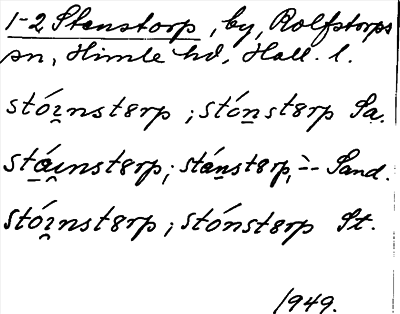 1-2 Stenstorp, by, Rolfstorps
sn, Himle hd, Hall. l.
stói̯nstɐrp; stónstɐrp Sa.
stái̯nstɐrp; stánstɐrp, -- Sand.
stói̯nstɐrp; stónstɐrp St.
1949.